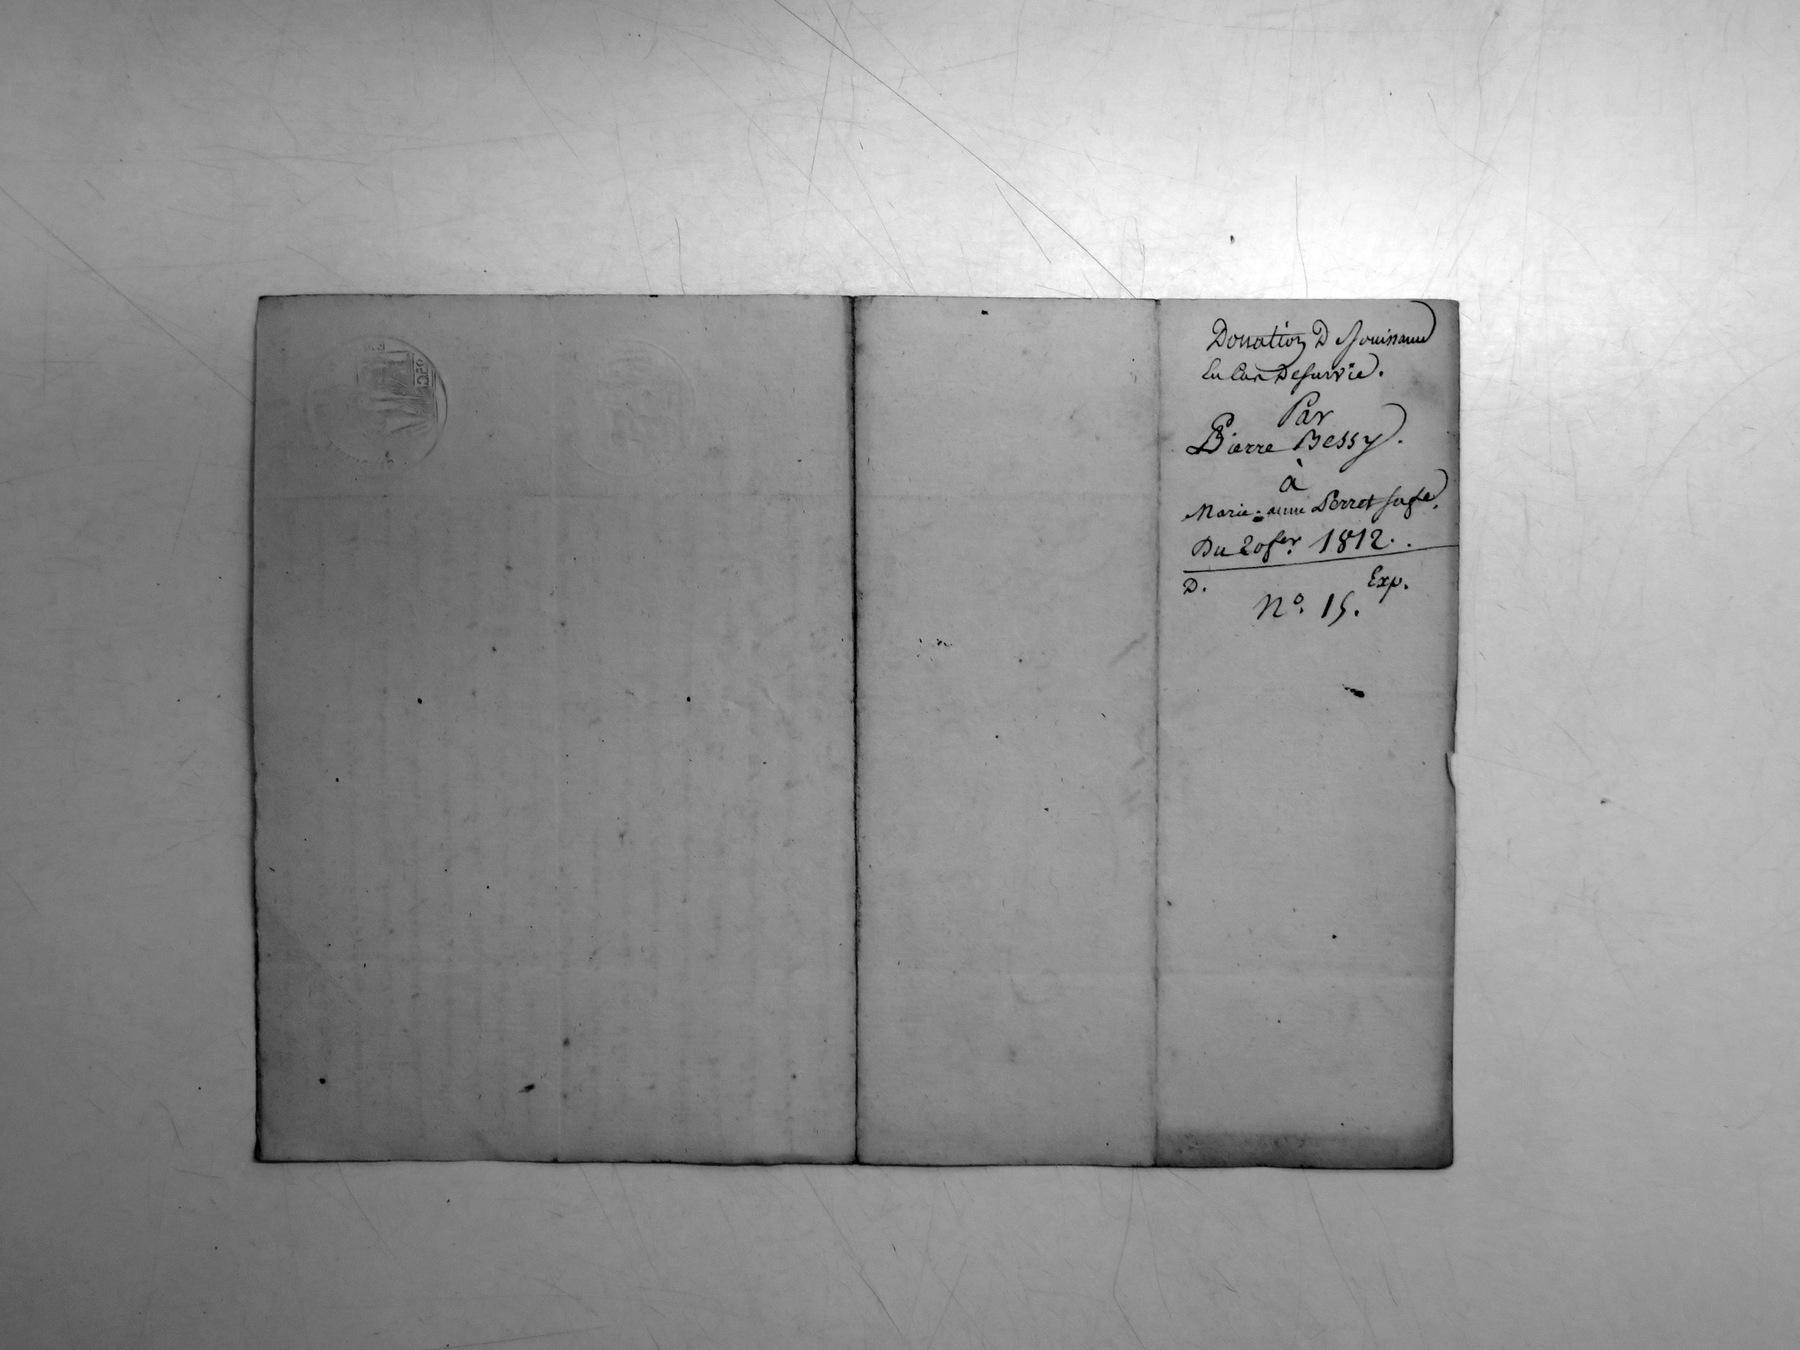 Donation De Jouissance
En Cas De survie.
Par
Pierre Bessy.
à
Marie-anne Perret sage.
Du 20 fer. 1812.
D. Exp.
No. 15.